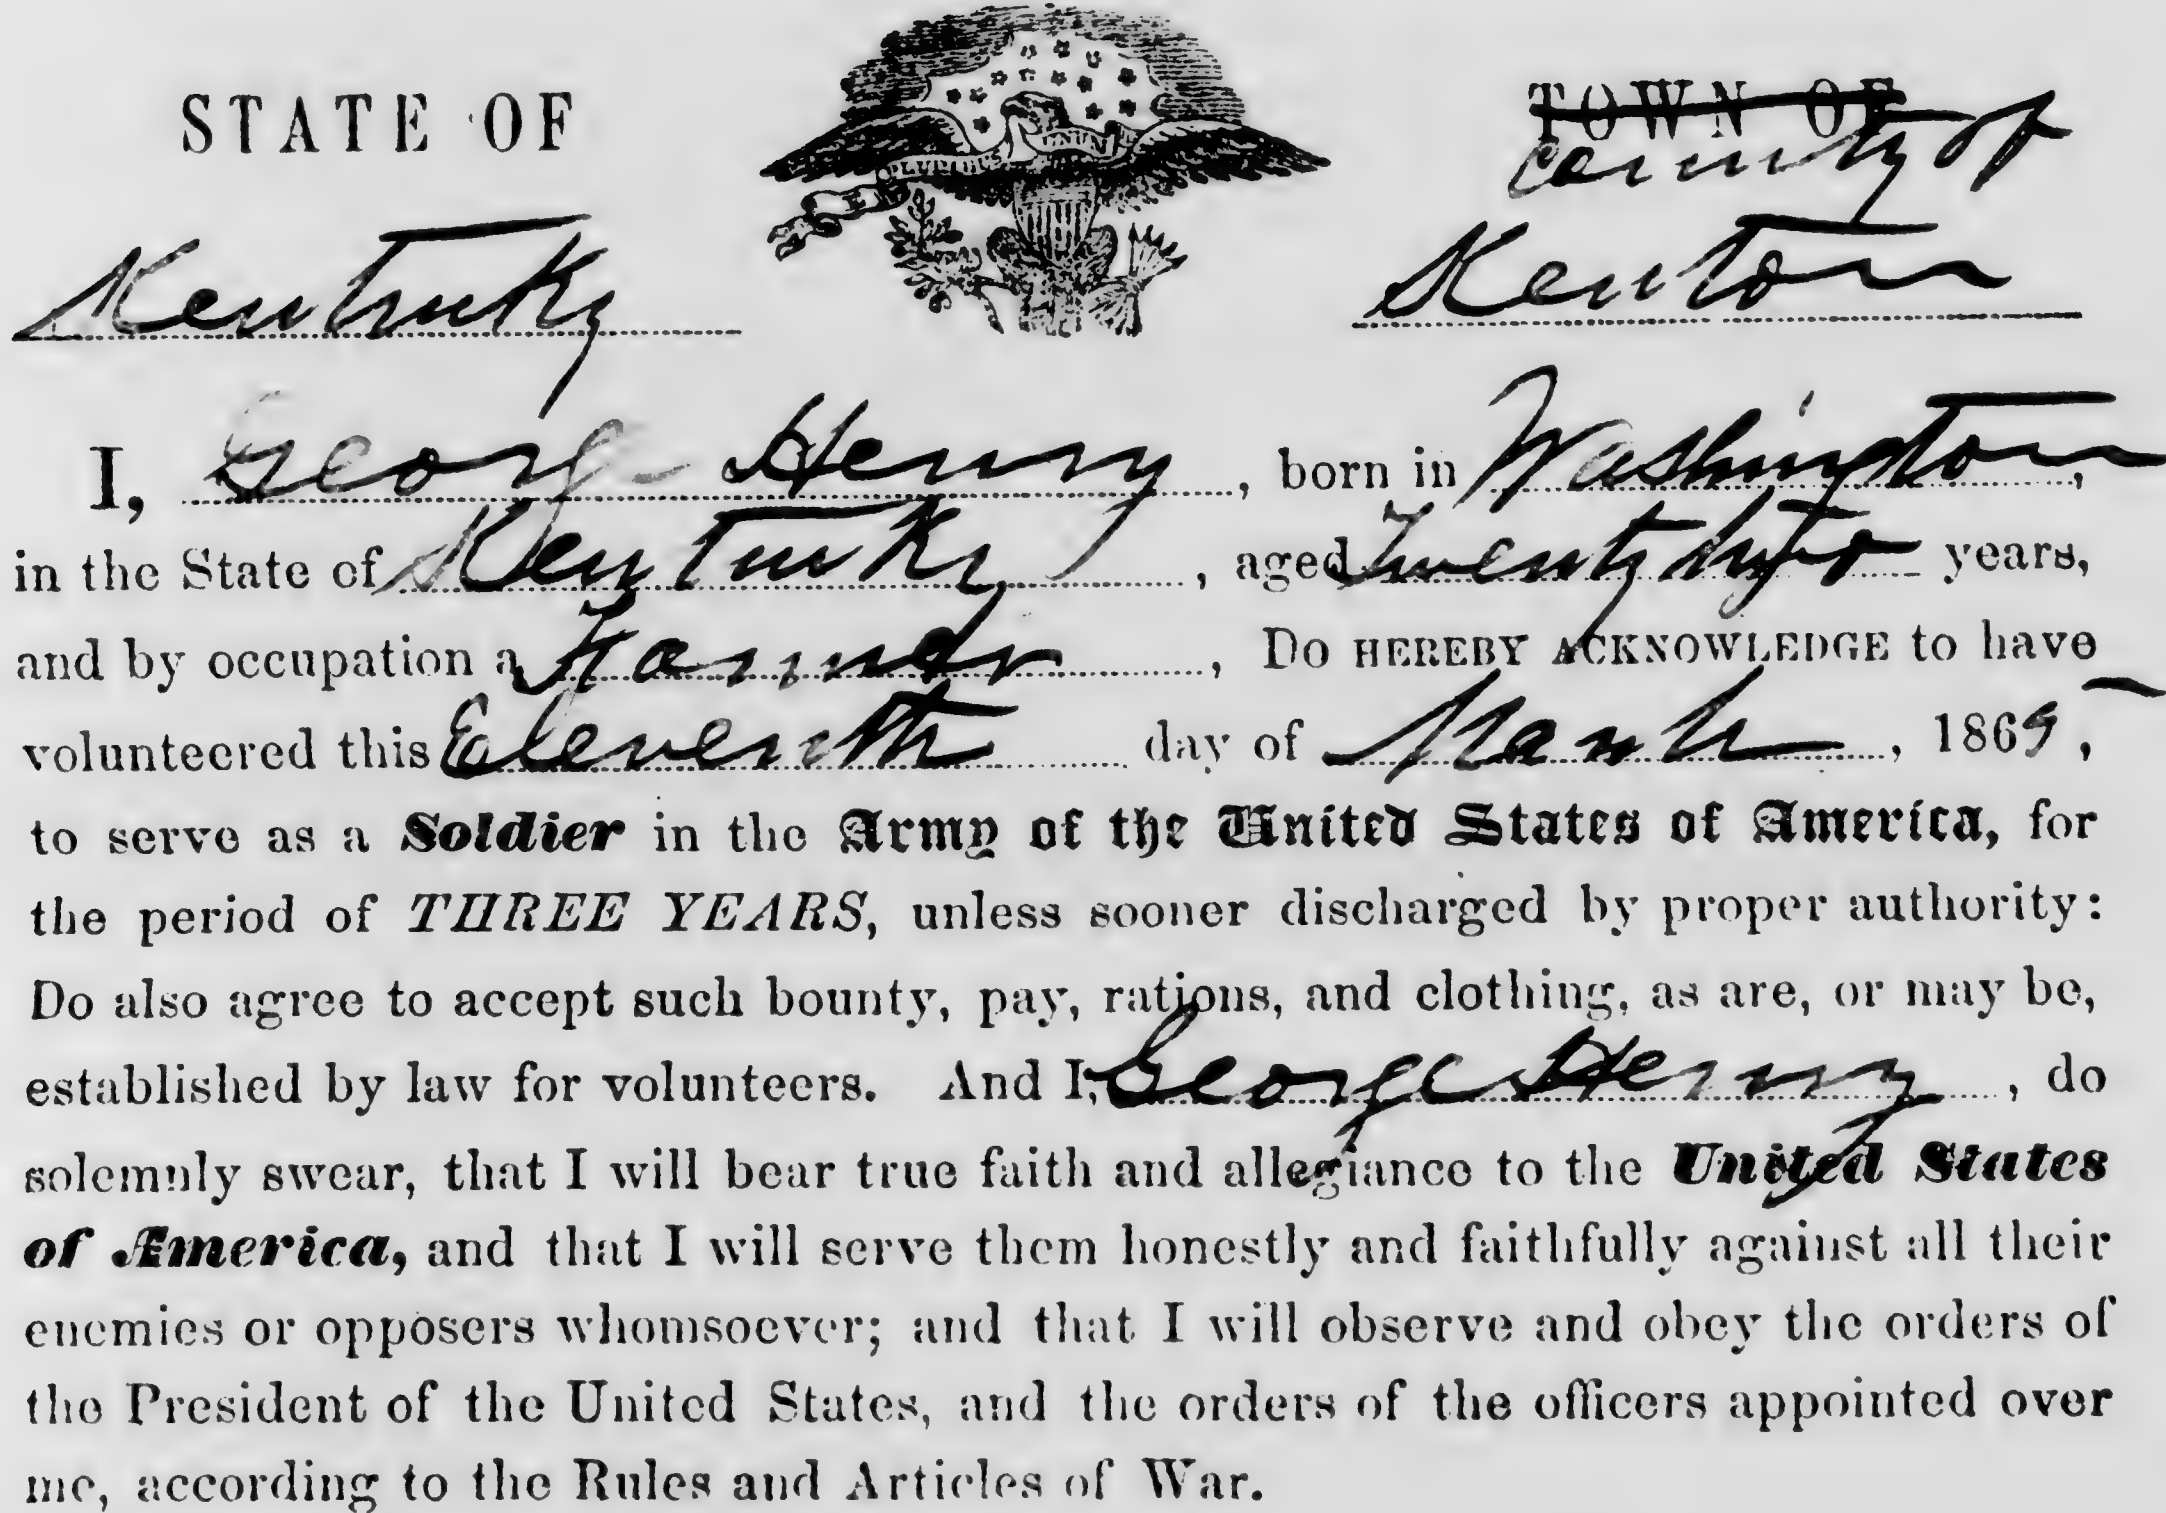 STATE OF
TOWN OF
County of
Kentucky
Kenton
E PLURIBUS UNUM
I, George Henry, born in Washington,
in the State of Kentucky, aged Twenty two years,
and by occupation a Farmer, Do HEREBY ACKNOWLEDGE to have
volunteered this Eleventh day of March, 1865,
to serve as a Soldier in the Army of the United States of America, for
the period of THREE YEARS, unless sooner discharged by proper authority:
Do also agree to accept such bounty, pay, rations, and clothing, as are, or may be,
established by law for volunteers. And I, George Henry, do
solemnly swear, that I will bear true faith and allegiance to the United States
of America, and that I will serve them honestly and faithfully against all their
enemies or opposers whomsoever; and that I will observe and obey the orders of
the President of the United States, and the orders of the officers appointed over
me, according to the Rules and Articles of War.